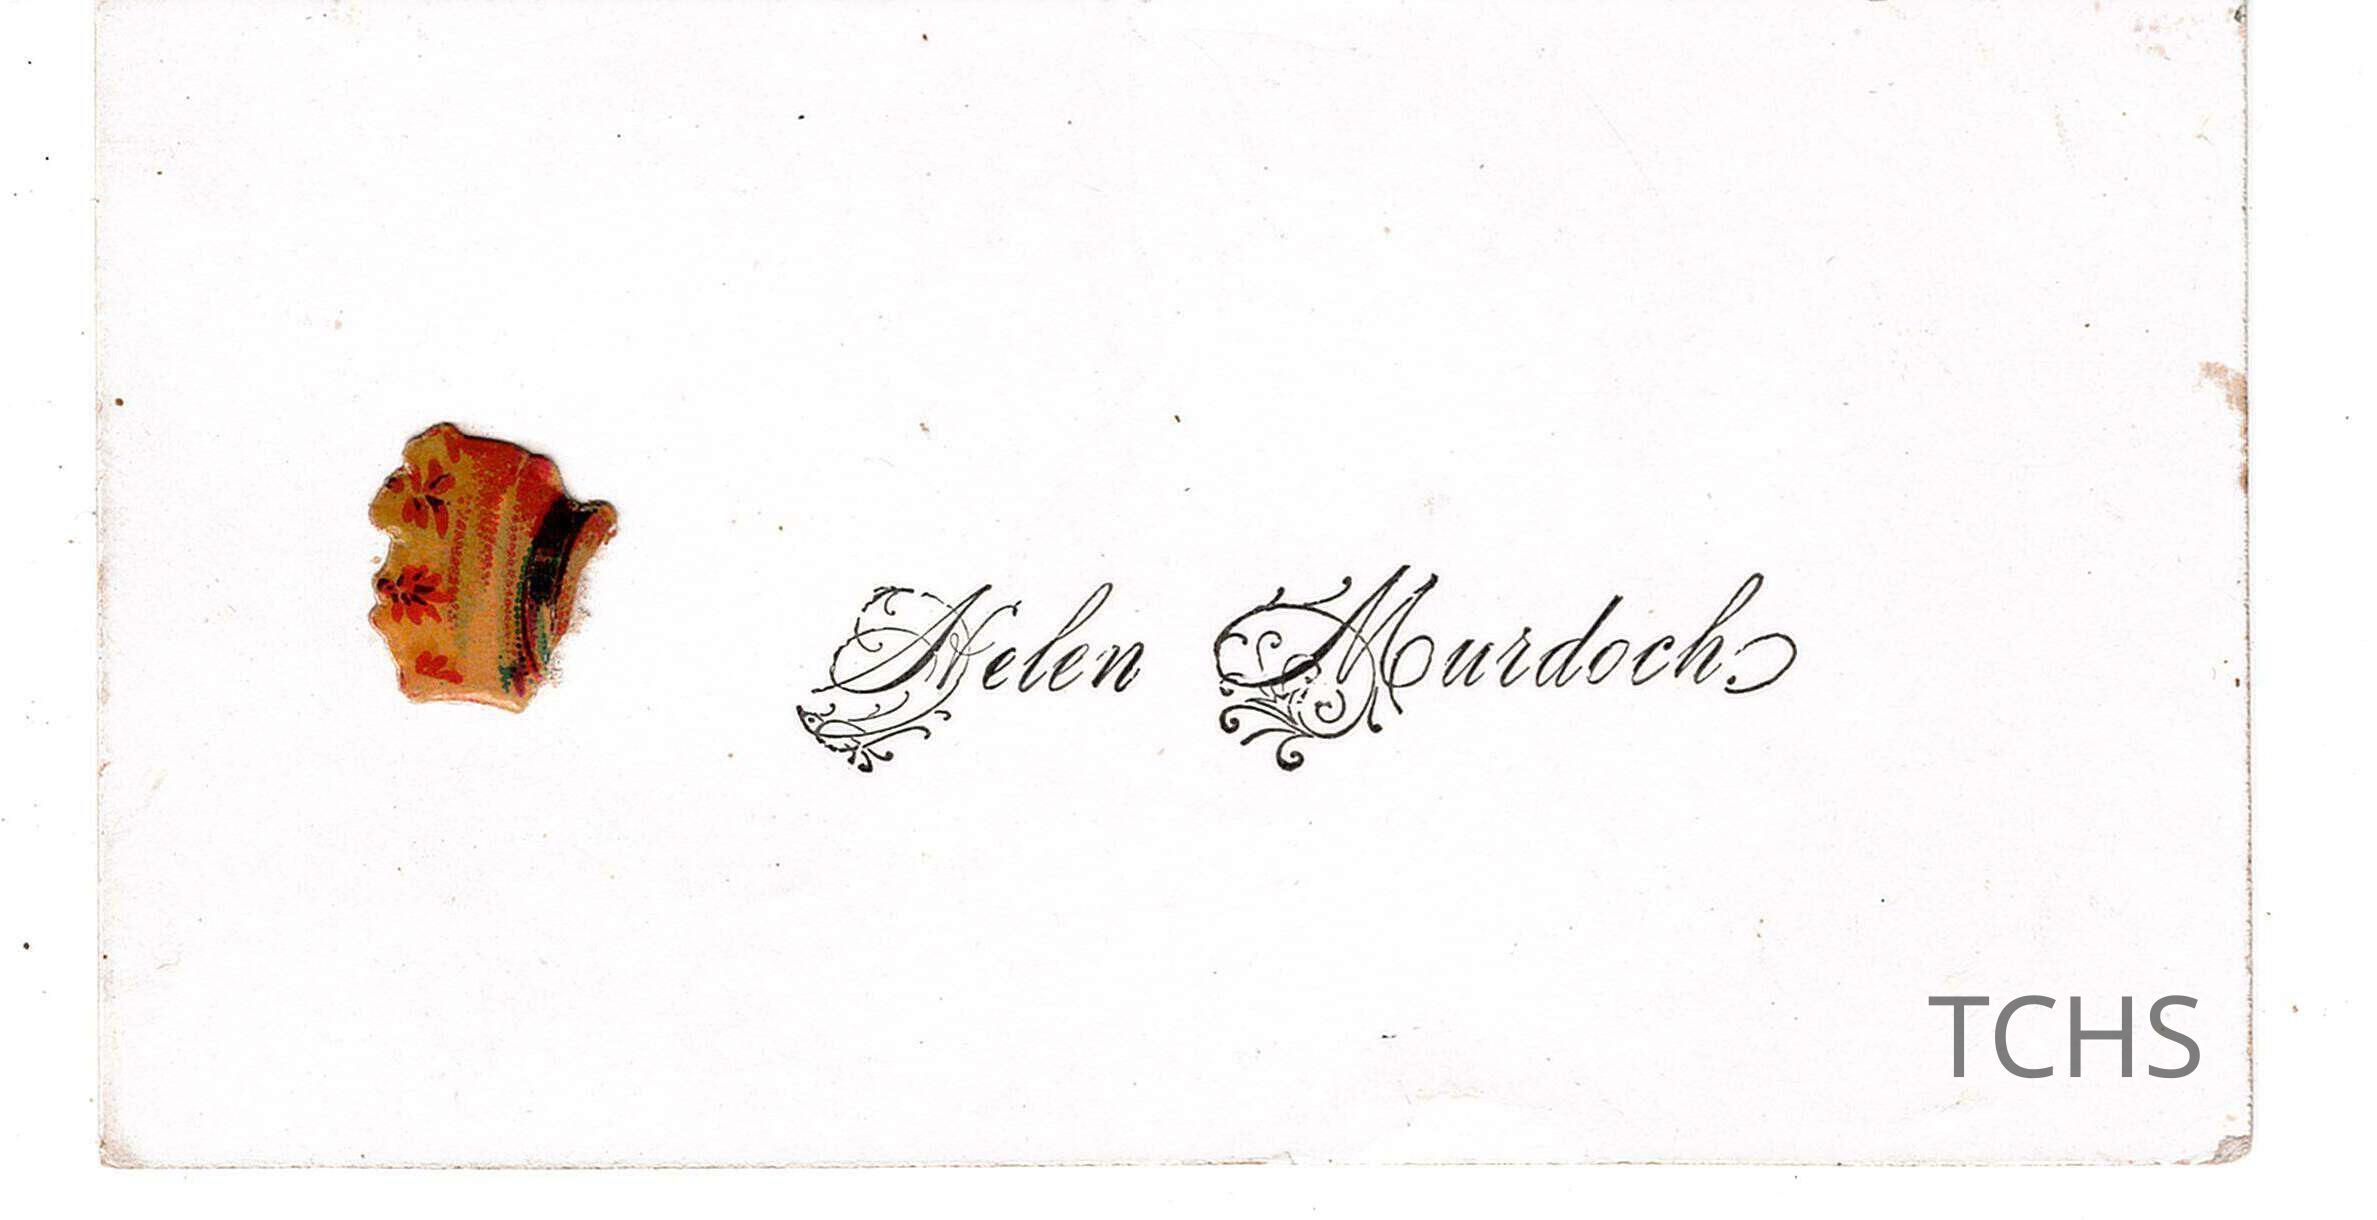 Helen Murdoch.
TCHS